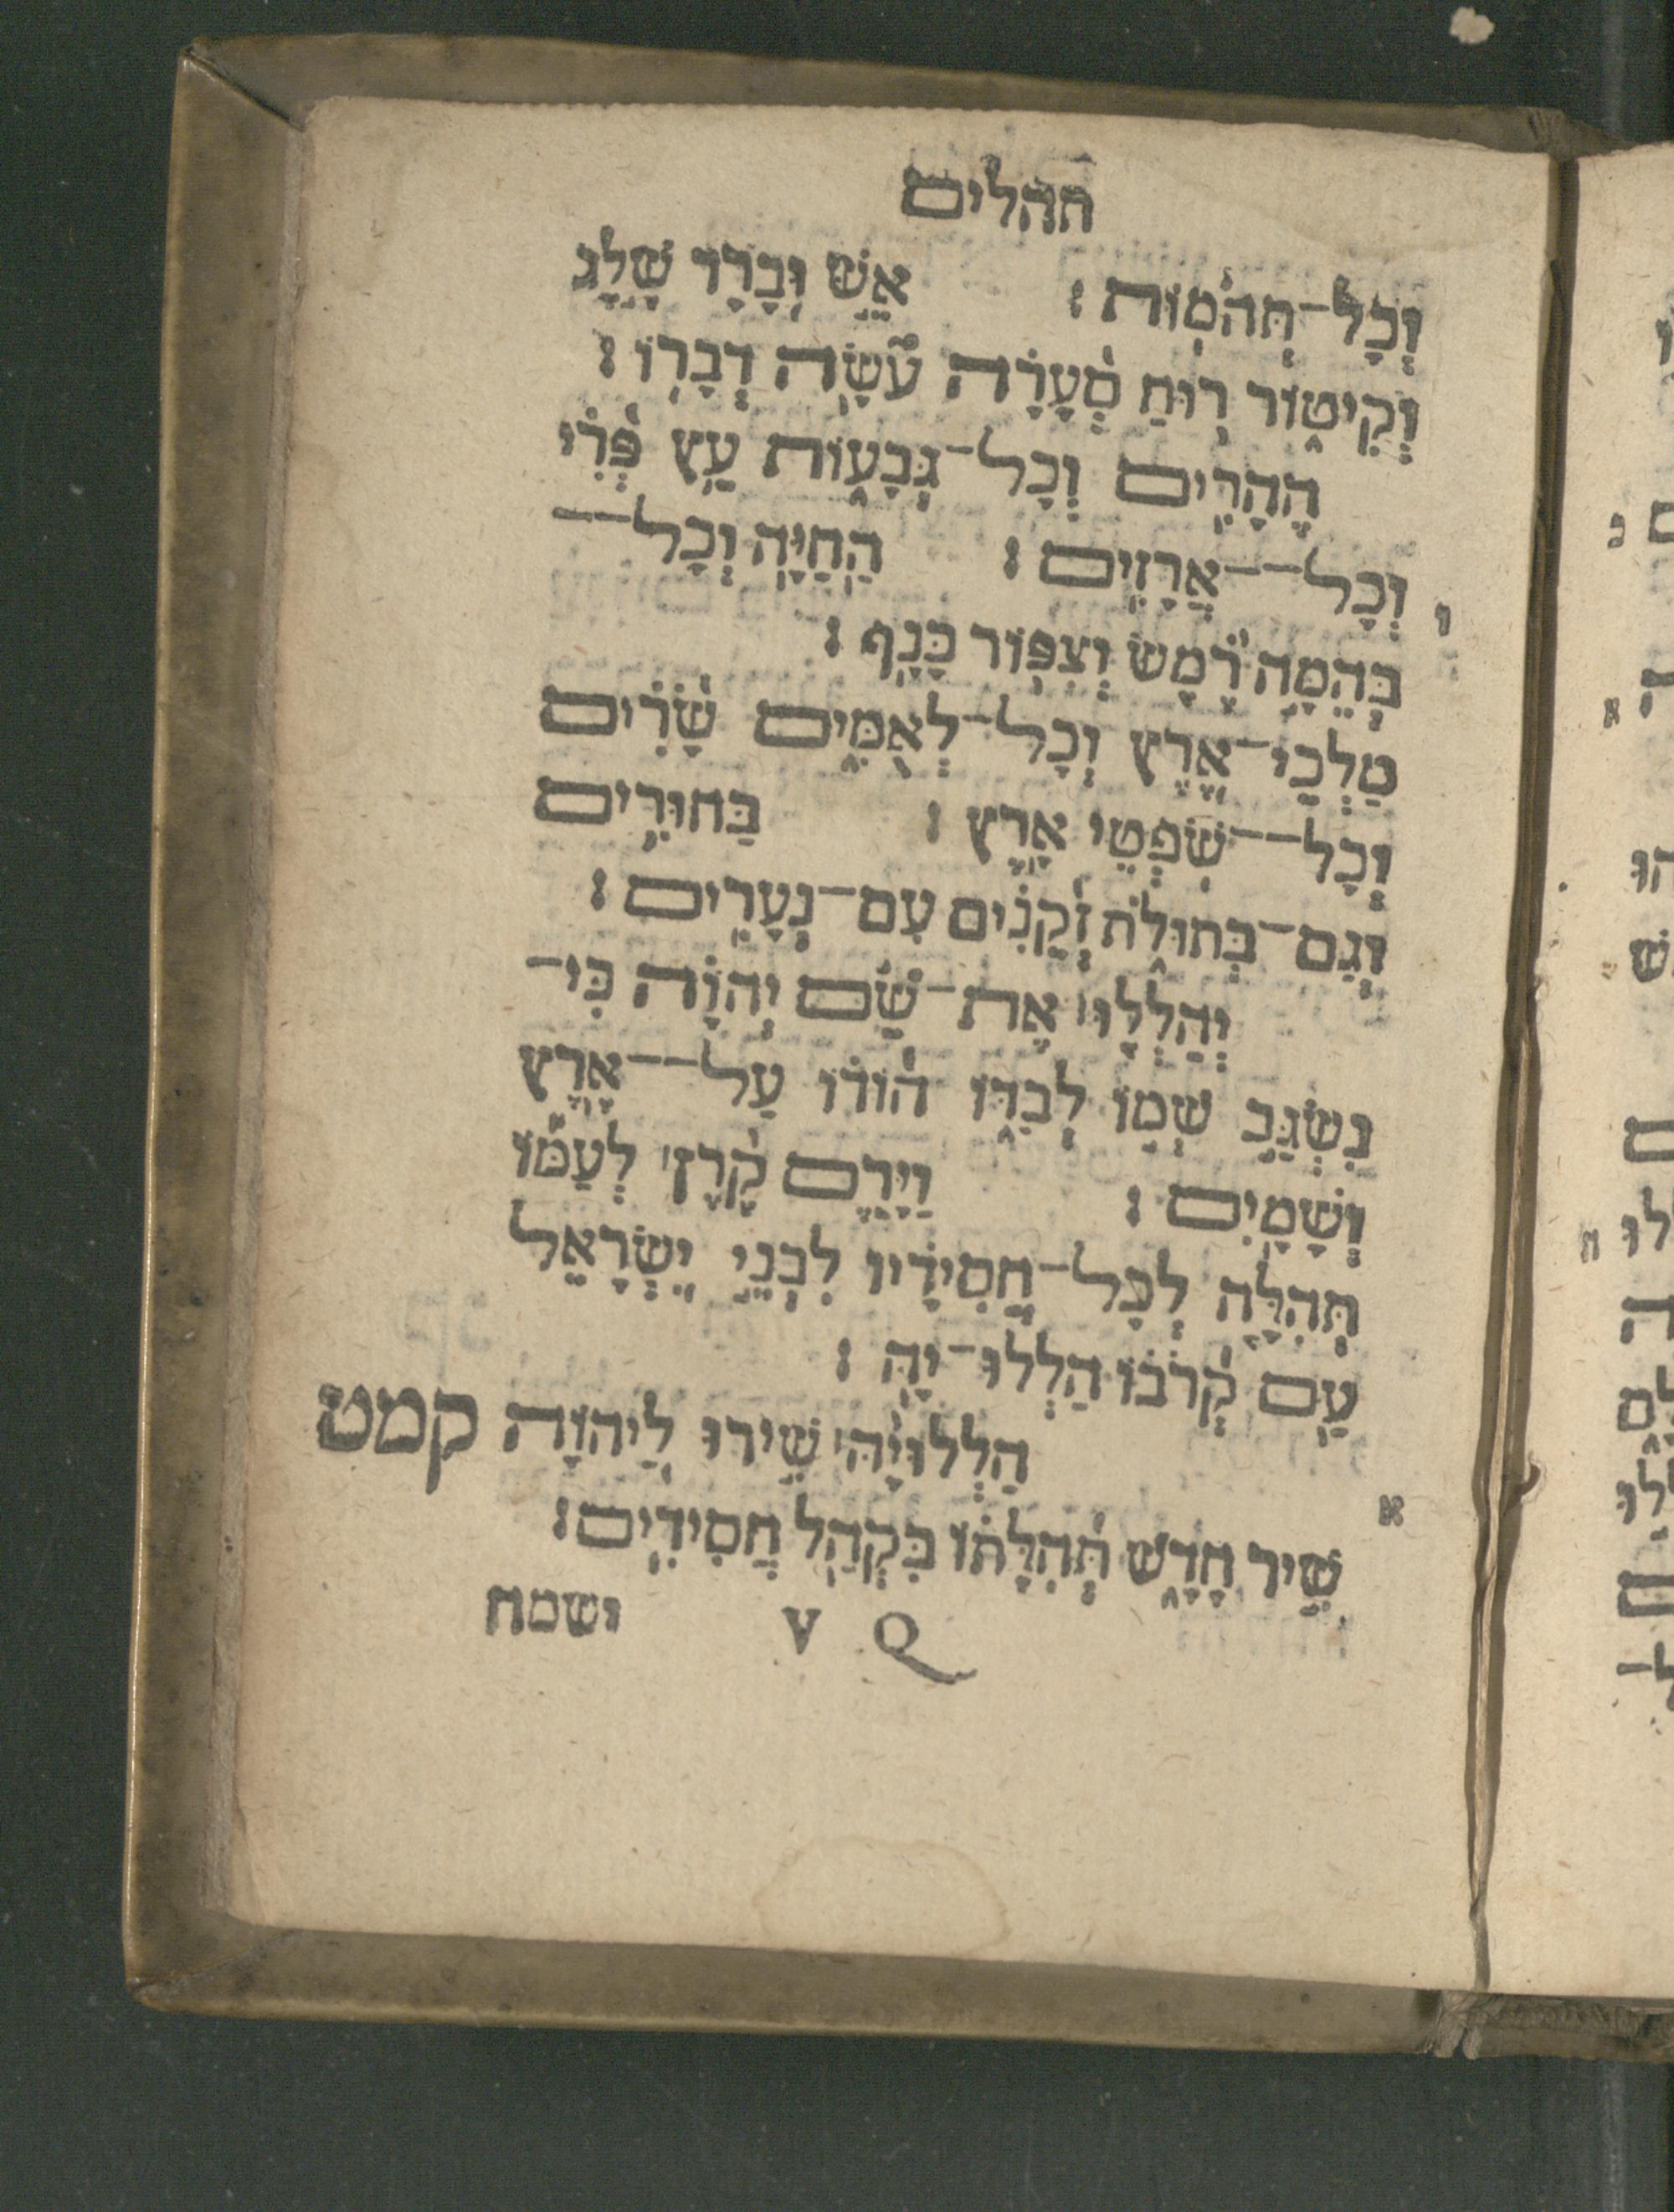 תהלים
וְכָל־תְּהֹמוֹת׃ אֵשׁ וּבָרָד שֶׁלֶג
וְקִיטוֹר רוּחַ סְעָרָה עֹשָׂה דְבָרוֹ׃
הֶהָרִים וְכָל־גְּבָעוֹת עֵץ פְּרִי
וְכָל־־אֲרָזִים׃ הַחַיָּה וְכָל־־
בְּהֵמָה רֶמֶשׂ וְצִפּוֹר כָּנָף׃
מַלְכֵי־אֶרֶץ וְכָל־לְאֻמִּים שָׂרִים
וְכָל־־שֹׁפְטֵי אָרֶץ׃ בַּחוּרִים
וְגַם־בְּתוּלֹת זְקֵנִים עִם־נְעָרִים׃
יְהַלְלוּ אֶת־שֵׁם יְהוָה כִּי־
נִשְׂגָּב שְׁמוֹ לְבַדּוֹ הוֹדוֹ עַל־־אֶרֶץ
וְשָׁמָיִם׃ וַיָּרֶם קֶרֶן לְעַמּוֹ
תְּהִלָּה לְכָל־חֲסִידָיו לִבְנֵי יִשְׂרָאֵל
עַם קְרֹבוֹ הַלְלוּ־יָהּ׃
הַלְלוּיָהּ שִׁירוּ לַיהוָה קמט
שִׁיר חָדָשׁ תְּהִלָּתוֹ בִּקְהַל חֲסִידִים׃
א
י
Q V ישמח